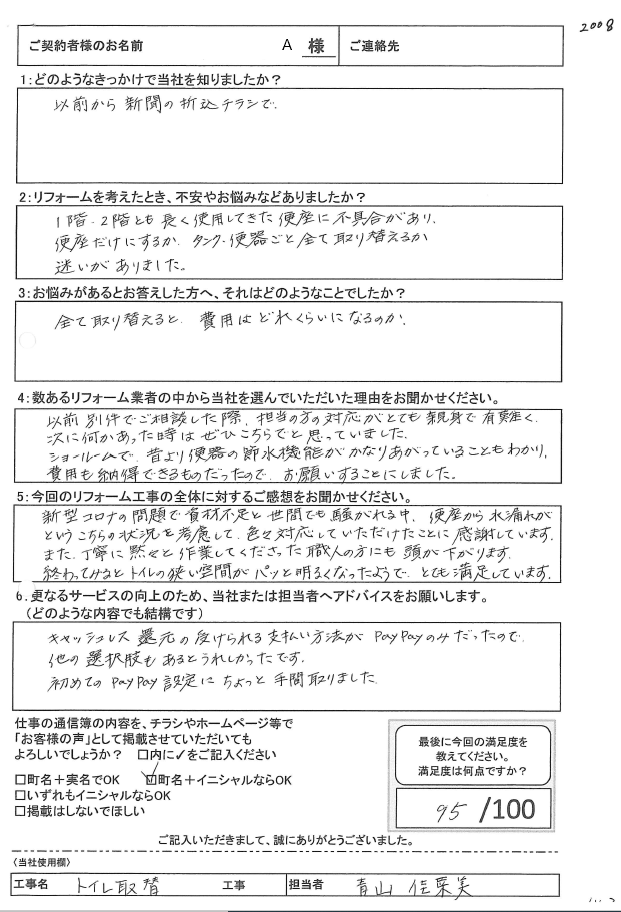 2008
ご契約者様のお名前 A 様 ご連絡先
1:どのようなきっかけで当社を知りましたか?
以前から新聞の折込チラシで.
2:リフォームを考えたとき、不安やお悩みなどありましたか?
1階.2階とも長く使用してきた便座に不具合があり.
便座だけにするか.タンク.便器ごと全て取り替えるか
迷いがありました。
3:お悩みがあるとお答えした方へ、それはどのようなことでしたか?
全て取り替えると.費用はどれくらいになるのか.
4:数あるリフォーム業者の中から当社を選んでいただいた理由をお聞かせください。
以前別件でご相談した際.担当の方の対応がとても親身で有難く.
次に何かあった時はぜひこちらでと思っていました.
ショールームで.昔より便器の節水機能がかなりあがっていることもわかり.
費用も納得できるものだったので.お願いすることにしました。
5:今回のリフォーム工事の全体に対するご感想をお聞かせください。
新型コロナの問題で資材不足と世間でも騒がれる中.便座から水漏れが
というこちらの状況を考慮して.色々対応していただけたことに感謝しています.
また.丁寧に黙々と作業してくださった職人の方にも頭が下がります.
終わってみるとトイレの狭い空間がパッと明るくなったようで.とても満足しています.
6.更なるサービスの向上のため、当社または担当者へアドバイスをお願いします。
(どのような内容でも結構です)
キャッシュレス還元の受けられる支払い方法がPayPayのみだったので.
他の選択肢もあるとうれしかったです.
初めてのPayPay設定にちょっと手間取りました
仕事の通信簿の内容を、チラシやホームページ等で
「お客様の声」として掲載させていただいても
よろしいでしょうか? □内に✓をご記入ください
□町名+実名でOK ☑町名+イニシャルならOK
□いずれもイニシャルならOK
□掲載はしないでほしい
最後に今回の満足度を
教えてください。
満足度は何点ですか?
95/100
ご記入いただきまして、誠にありがとうございました。
〈当社使用欄〉
工事名 トイレ取替 工事 担当者 青山 佳菜美